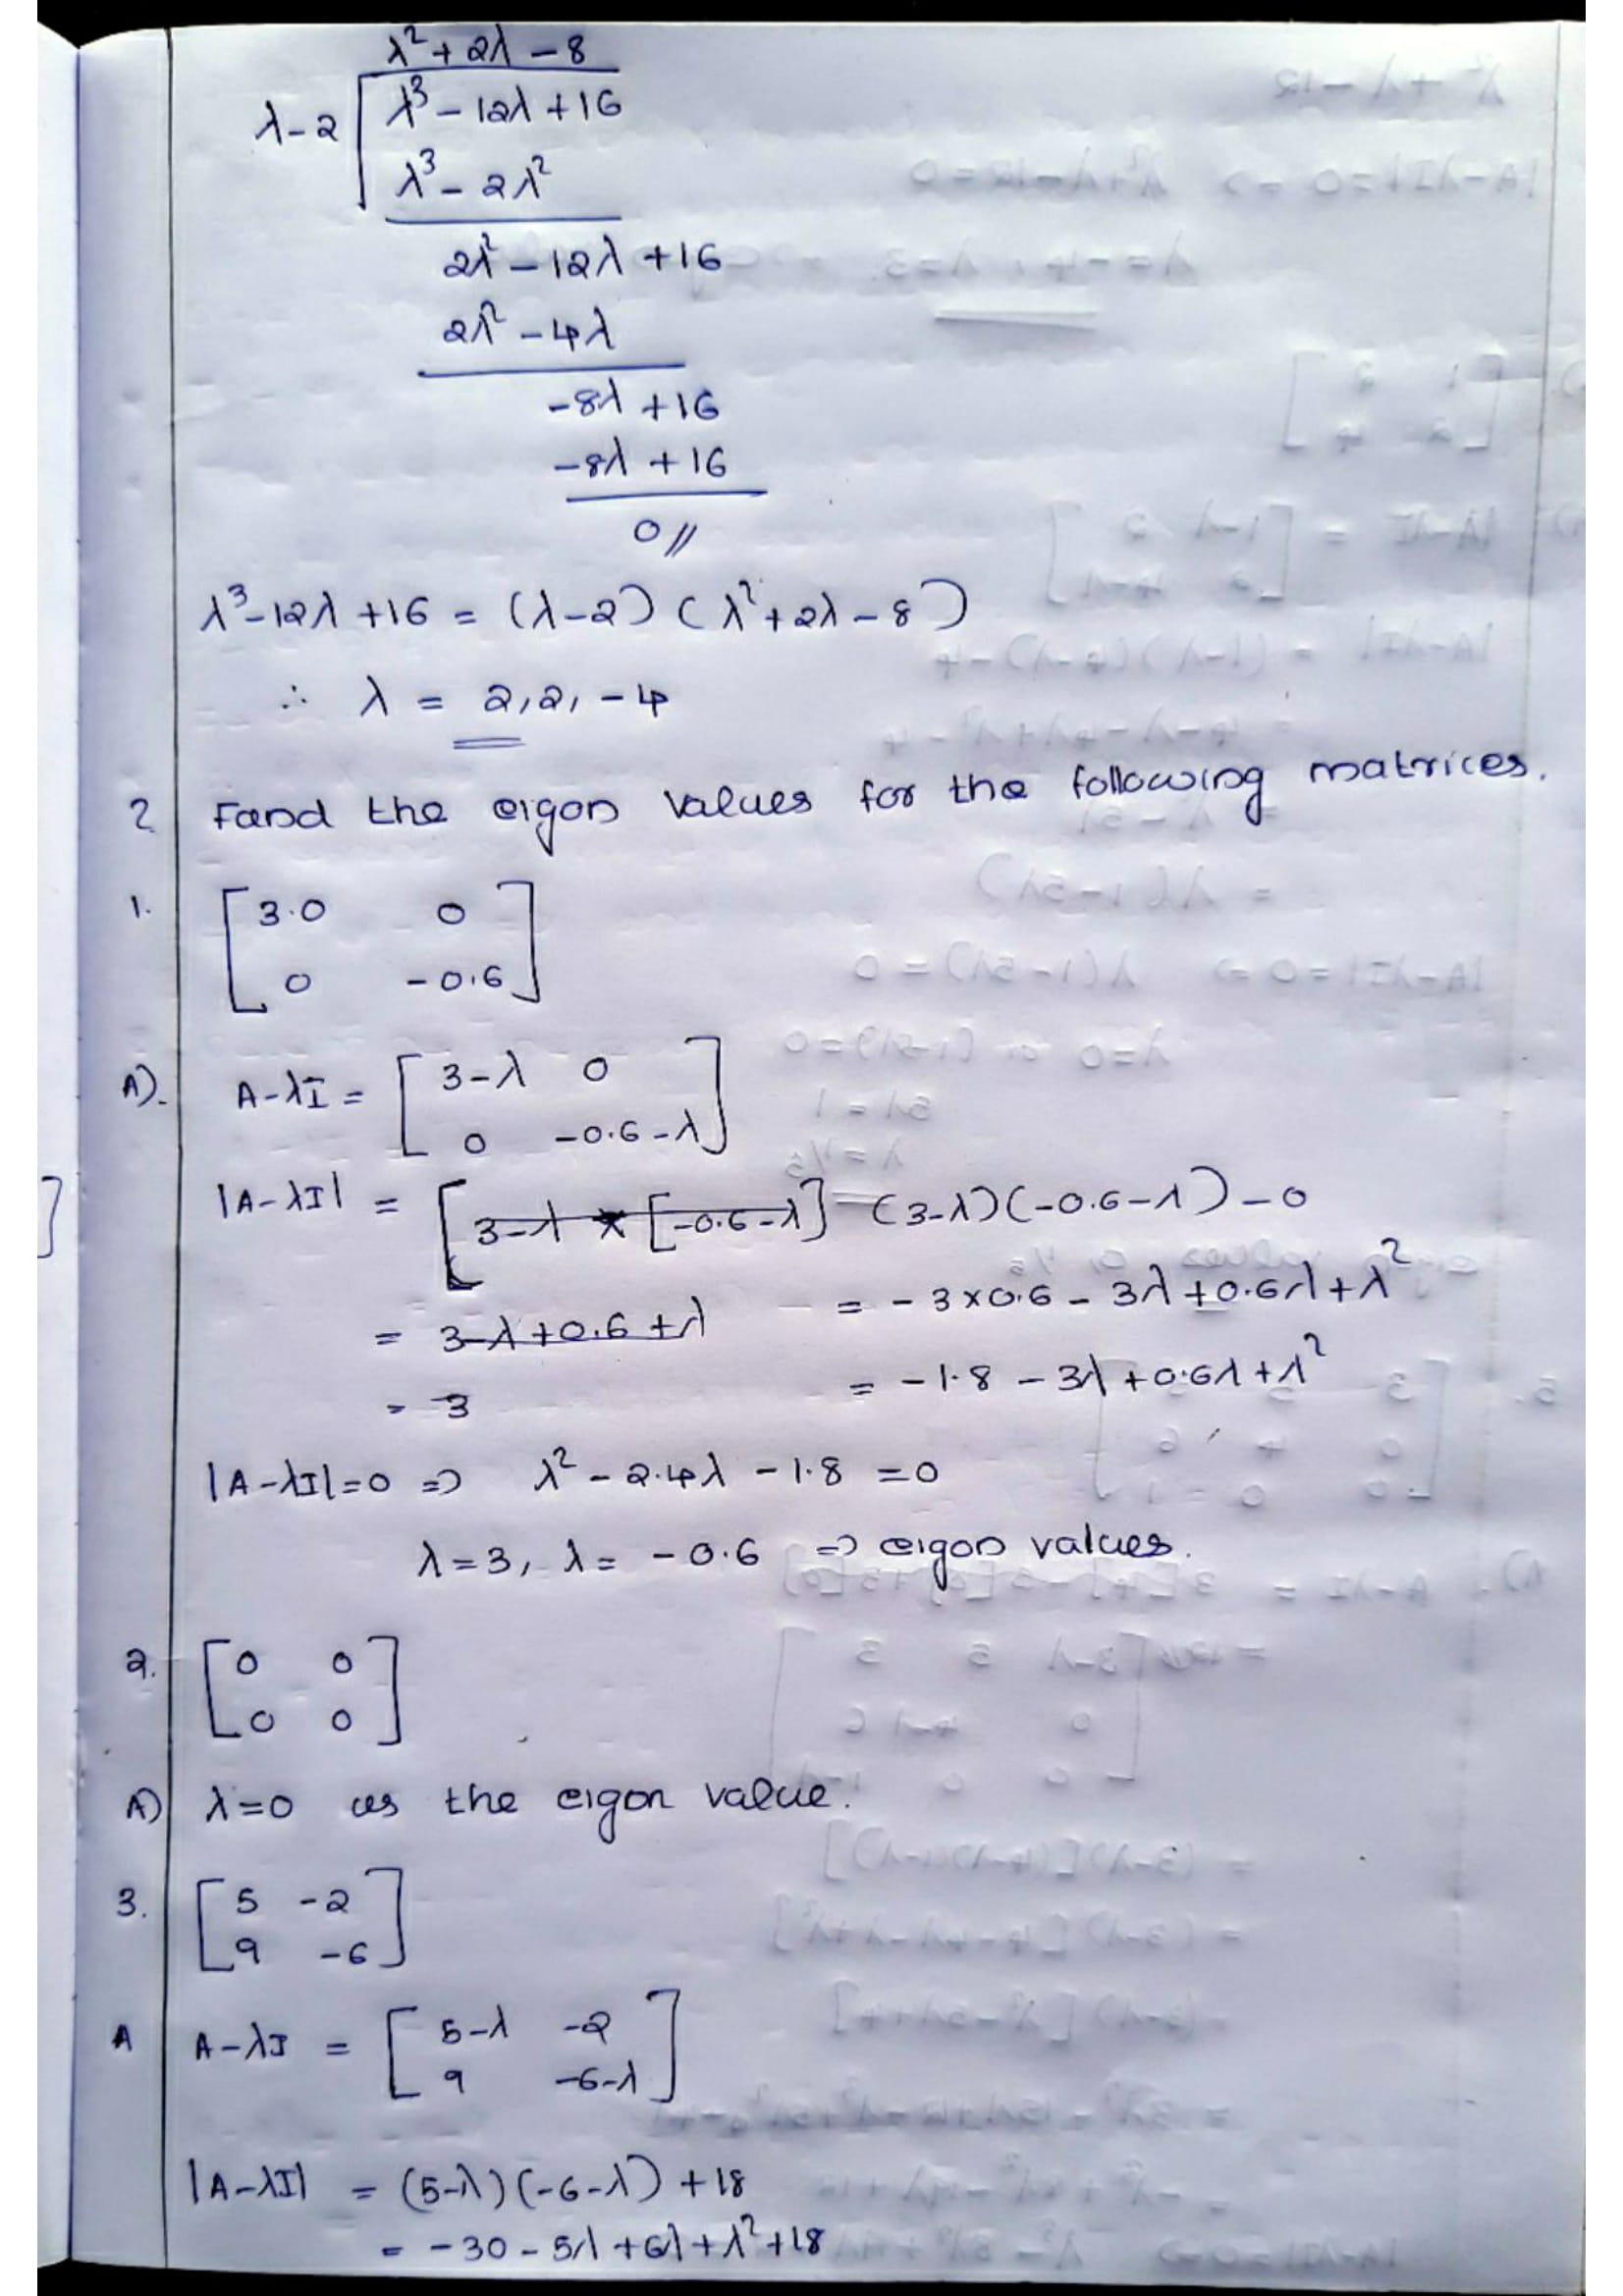 λ² + 2λ - 8
λ-2 | λ³ - 12λ + 16
λ³ - 2λ²
2λ² - 12λ + 16
2λ² - 4λ
-8λ + 16
-8λ + 16
0 //
λ³ - 12λ + 16 = (λ-2) (λ² + 2λ - 8)
∴ λ = 2, 2, -4
2 Find the eigon values for the following matrices.
1. [ 3.0 0
0 -0.6 ]
A). A-λI = [ 3-λ 0
0 -0.6-λ ]
|A-λI| = [3-λ * [-0.6-λ] (3-λ)(-0.6-λ) - 0
= 3-λ+0.6+λ = -3×0.6 - 3λ + 0.6λ + λ²
= 3 = -1.8 - 3λ + 0.6λ + λ²
|A-λI| = 0 ⇒ λ² - 2.4λ - 1.8 = 0
λ = 3, λ = -0.6 ⇒ eigon values.
2. [ 0 0
0 0 ]
A) λ=0 is the eigon value.
3. [ 5 -2
9 -6 ]
A A-λI = [ 5-λ -2
9 -6-λ ]
|A-λI| = (5-λ)(-6-λ) + 18
= -30 - 5λ + 6λ + λ² + 18